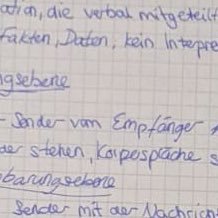 ation, die verbal mitgeteilt
Fakten, Daten, kein Interpre
ngsebene
- Sender vom Empfänger
der stehen, Körpespräche s
barungsebene
Sender mit der Nachrich